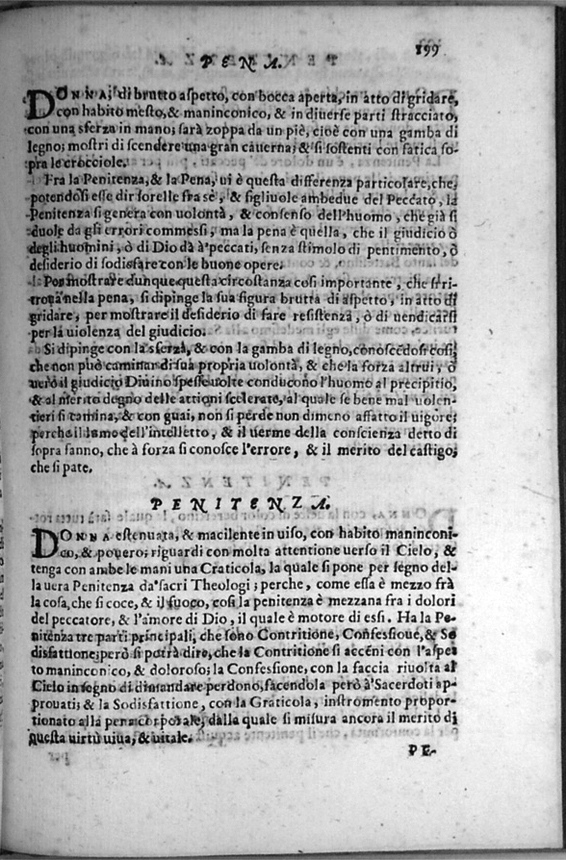 199
PENA.
DONNA, di brutto aspetto, con bocca aperta, in atto di gridare,
con habito mesto, & maninconico, & in diuerse parti stracciato,
con una sferza in mano; sarà zoppa da un piè, cioè con una gamba di
legno; mostri di scendere una gran cauerna; & si sostenti con fatica so-
pra le crocciole.
Fra la Penitenza, & la Pena, ui è questa differenza particolare, che,
potendosi esse dir sorelle fra sè, & figliuole ambedue del Peccato, la
Penitenza si genera con uolontà, & consenso dell'huomo, che già si
duole da gli errori commessi; ma la pena è quella, che il giudicio ò
degli huomini, ò di Dio dà à'peccati, senza stimolo di pentimento, ò
desiderio di sodisfare con le buone opere.
Per mostrare dunque questa circostanza cosi importante, che si ri-
troua nella pena, si dipinge la sua figura brutta di aspetto, in atto di
gridare, per mostrare il desiderio di fare resistenza, ò di uendicarsi
per la uiolenza del giudicio.
Si dipinge con la sferza, & con la gamba di legno, conoscēdosi cosi,
che non può caminar di sua propria uolontà, & che la forza altrui, ò
uerò il giudicio Diuino spesse uolte conducono l'huomo al precipitio,
& al merito degno delle attioni scelerate, al quale se bene mal uolen-
tieri si camina, & con guai, non si perde non dimeno affatto il uigore;
perche il lume dell'intelletto, & il uerme della conscienza detto di
sopra fanno, che à forza si conosce l'errore, & il merito del castigo,
che si pate.
PENITENZA.
DONNA estenuata, & macilente in uiso, con habito maninconi-
co, & pouero; riguardi con molta attentione uerso il Cielo, &
tenga con ambe le mani una Craticola, la quale si pone per segno del-
la uera Penitenza da'sacri Theologi; perche, come essa è mezzo frà
la cosa, che si coce, & il fuoco, cosi la penitenza è mezzana fra i dolori
del peccatore, & l'amore di Dio, il quale è motore di essi. Ha la Pe-
nitenza tre parti principali, che sono Contritione, Confessioue, & So
disfattione; però si potrà dire, che la Contritione si accēni con l'aspet
to maninconico, & doloroso; la Confessione, con la faccia riuolta al
Cielo in segno di dimandare perdono, facendola però à'Sacerdoti ap-
prouati; & la Sodisfattione, con la Graticola, instromento propor-
tionato alla pena corporale, dalla quale si misura ancora il merito di
questa uirtù uiua, & uitale.
PE-